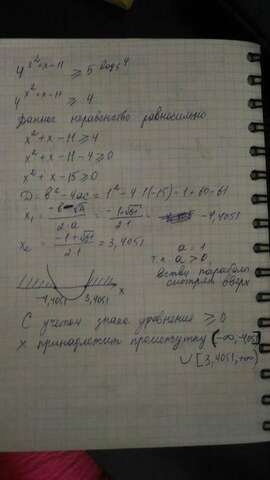 4^(x²+x-11) ≥ 5^(log₅4)
4^(x²+x-11) ≥ 4
данное неравенство равносильно
x²+x-11 ≥ 4
x²+x-11-4 ≥ 0
x²+x-15 ≥ 0
D = b²-4ac = 1²-4·1(-15) = 1+60=61
x₁ = (-b-√D)/(2·a) = -(1+√61)/(2·1) = -4,4051
x₂ = (-1+√61)/(2·1) = 3,4051
a = 1
т.к a > 0,
ветви параболы
смотрят вверх
-4,4051 3,4051 x
С учетом знака уравнения ≥ 0
x принадлежит промежутку (-∞, -4,4051]
∪ [3,4051, +∞)